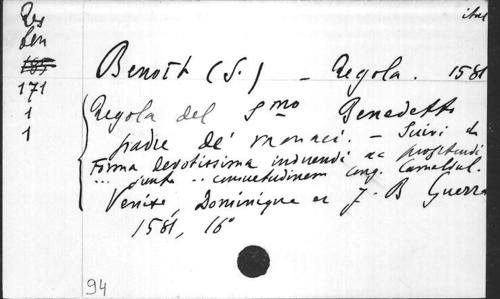 Res
ben
ital
185
171
1
1
Benoît (S.) - Regola. 1581
Regola del Smo Benedetto
padre de' monaci. - Suivi de
Forma devotissima induendi ac profitendi
... juxta .. consuetudinem cong. Camaldul.
Venise, Dominique et J. B Guerra
1581, 16°
94